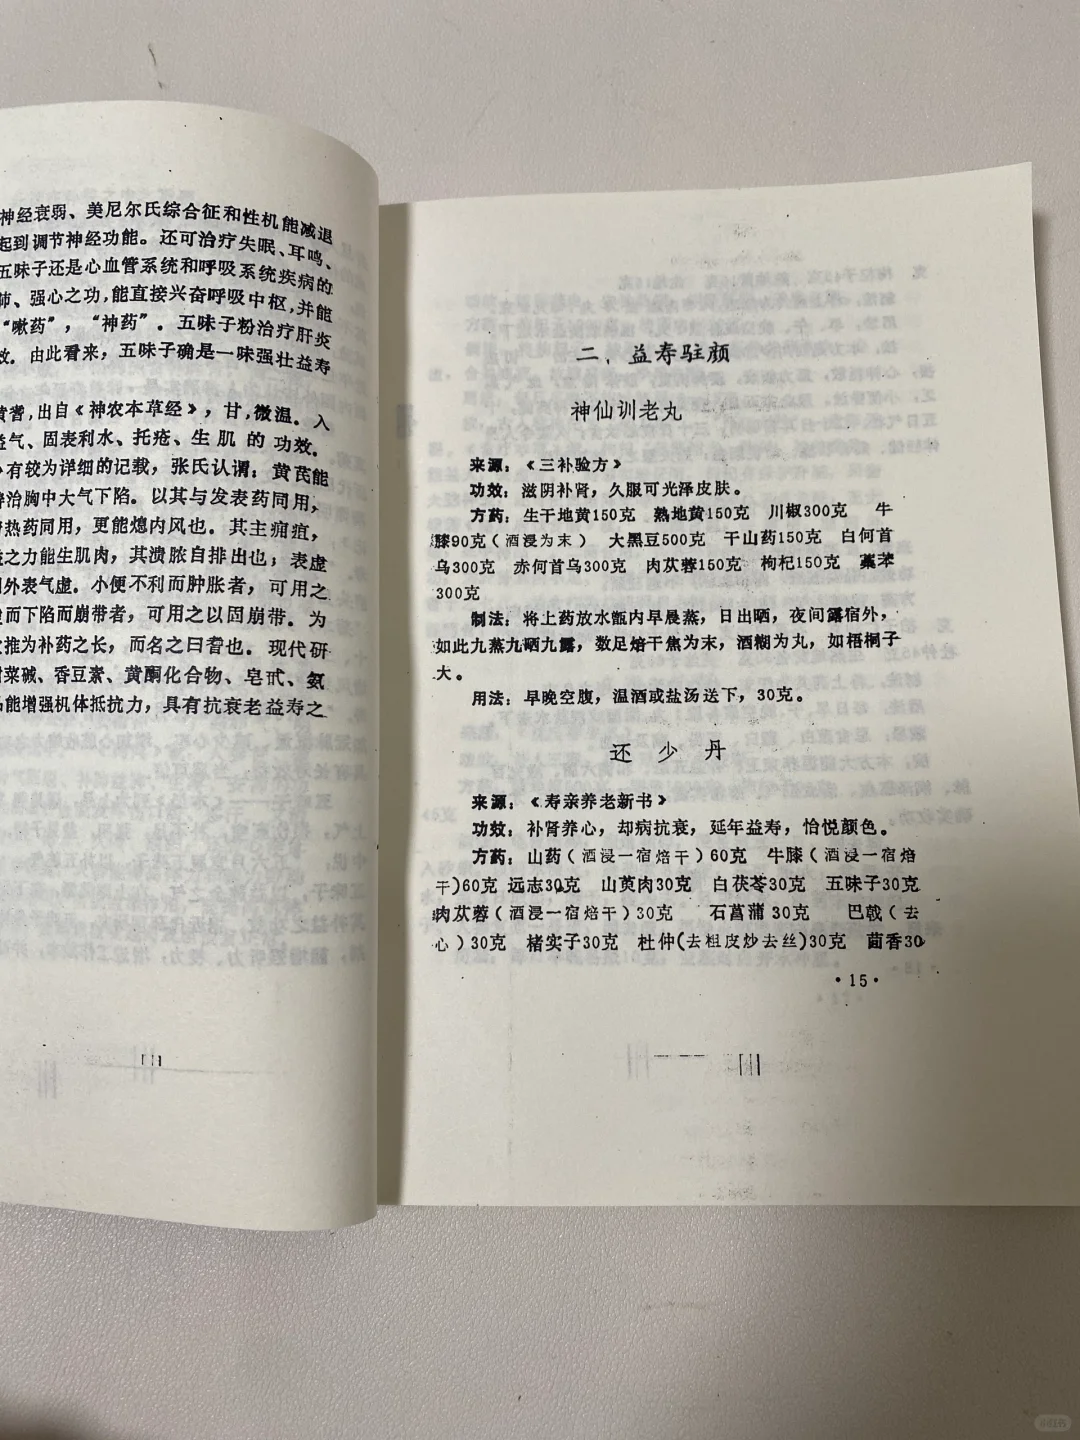 神经衰弱、美尼尔氏综合征和性机能减退
起到调节神经功能。还可治疗失眠、耳鸣、
五味子还是心血管系统和呼吸系统疾病的
肺、强心之功,能直接兴奋呼吸中枢,并能
“嗽药”,“神药”。五味子粉治疗肝炎
效。由此看来,五味子确是一味强壮益寿
黄耆,出自《神农本草经》,甘,微温。入
益气、固表利水、托疮、生肌的功效。
有较为详细的记载,张氏认谓:黄芪能
善治胸中大气下陷。以其与发表药同用,
热药同用,更能熄内风也。其主痈疽,
之力能生肌肉,其溃脓自排出也;表虚
外表气虚。小便不利而肿胀者,可用之
而下陷而崩带者,可用之以固崩带。为
推为补药之长,而名之曰耆也。现代研
甜菜碱、香豆素、黄酮化合物、皂甙、氨
能增强机体抵抗力,具有抗衰老益寿之
二、益寿驻颜
神仙训老丸
来源:《三补验方》
功效:滋阴补肾,久服可光泽皮肤。
方药:生干地黄150克 熟地黄150克 川椒300克 牛
膝90克(酒浸为末) 大黑豆500克 干山药150克 白何首
乌300克 赤何首乌300克 肉苁蓉150克 枸杞150克 藁苯
300克
制法:将上药放水甑内早晨蒸,日出晒,夜间露宿外,
如此九蒸九晒九露,数足焙干焦为末,酒糊为丸,如梧桐子
大。
用法:早晚空腹,温酒或盐汤送下,30克。
还少丹
来源:《寿亲养老新书》
功效:补肾养心,却病抗衰,延年益寿,怡悦颜色。
方药:山药(酒浸一宿焙干)60克 牛膝(酒浸一宿焙
干)60克 远志30克 山萸肉30克 白茯苓30克 五味子30克
肉苁蓉(酒浸一宿焙干)30克 石菖蒲30克 巴戟(去
心)30克 楮实子30克 杜仲(去粗皮炒去丝)30克 茴香30
·15·